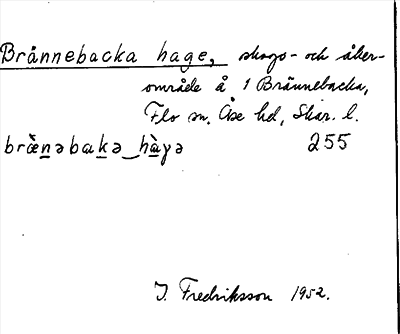 Brännebacka hage, skogs- och åker-
område å 1 Brännebacka,
Flo sn, Åse hd, Skar. l.
bræ̀nəbakə hàγə 255
J. Fredriksson 1952.